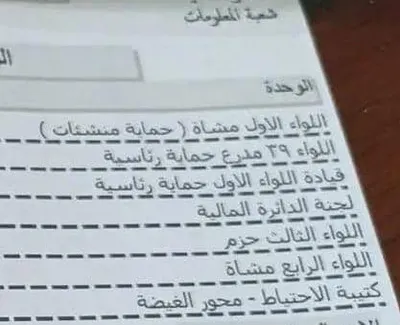 شعبة المعلومات
الوحدة
اللواء الاول مشاة ( حماية منشئات )
اللواء ٣٩ مدرع حماية رئاسية
قيادة اللواء الاول حماية رئاسية
لجنة الدائرة المالية
اللواء الثالث حزم
اللواء الرابع مشاة
كتيبة الاحتياط - محور الغيضة